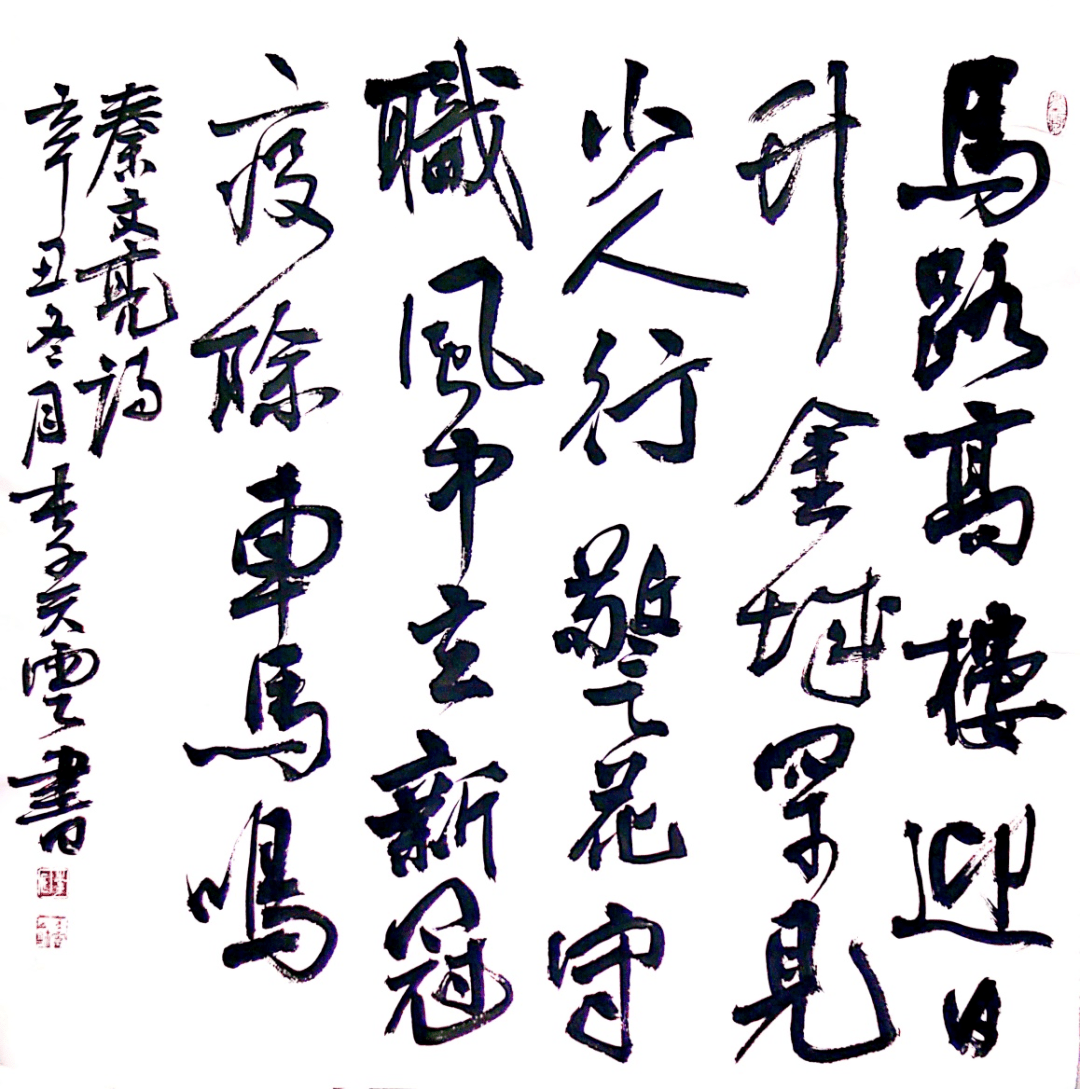 馬路高樓迎日
升金城罕見
少人行警花守
職風中立新冠
疫除車馬鳴
秦文亮詩
辛丑冬月李天雲書